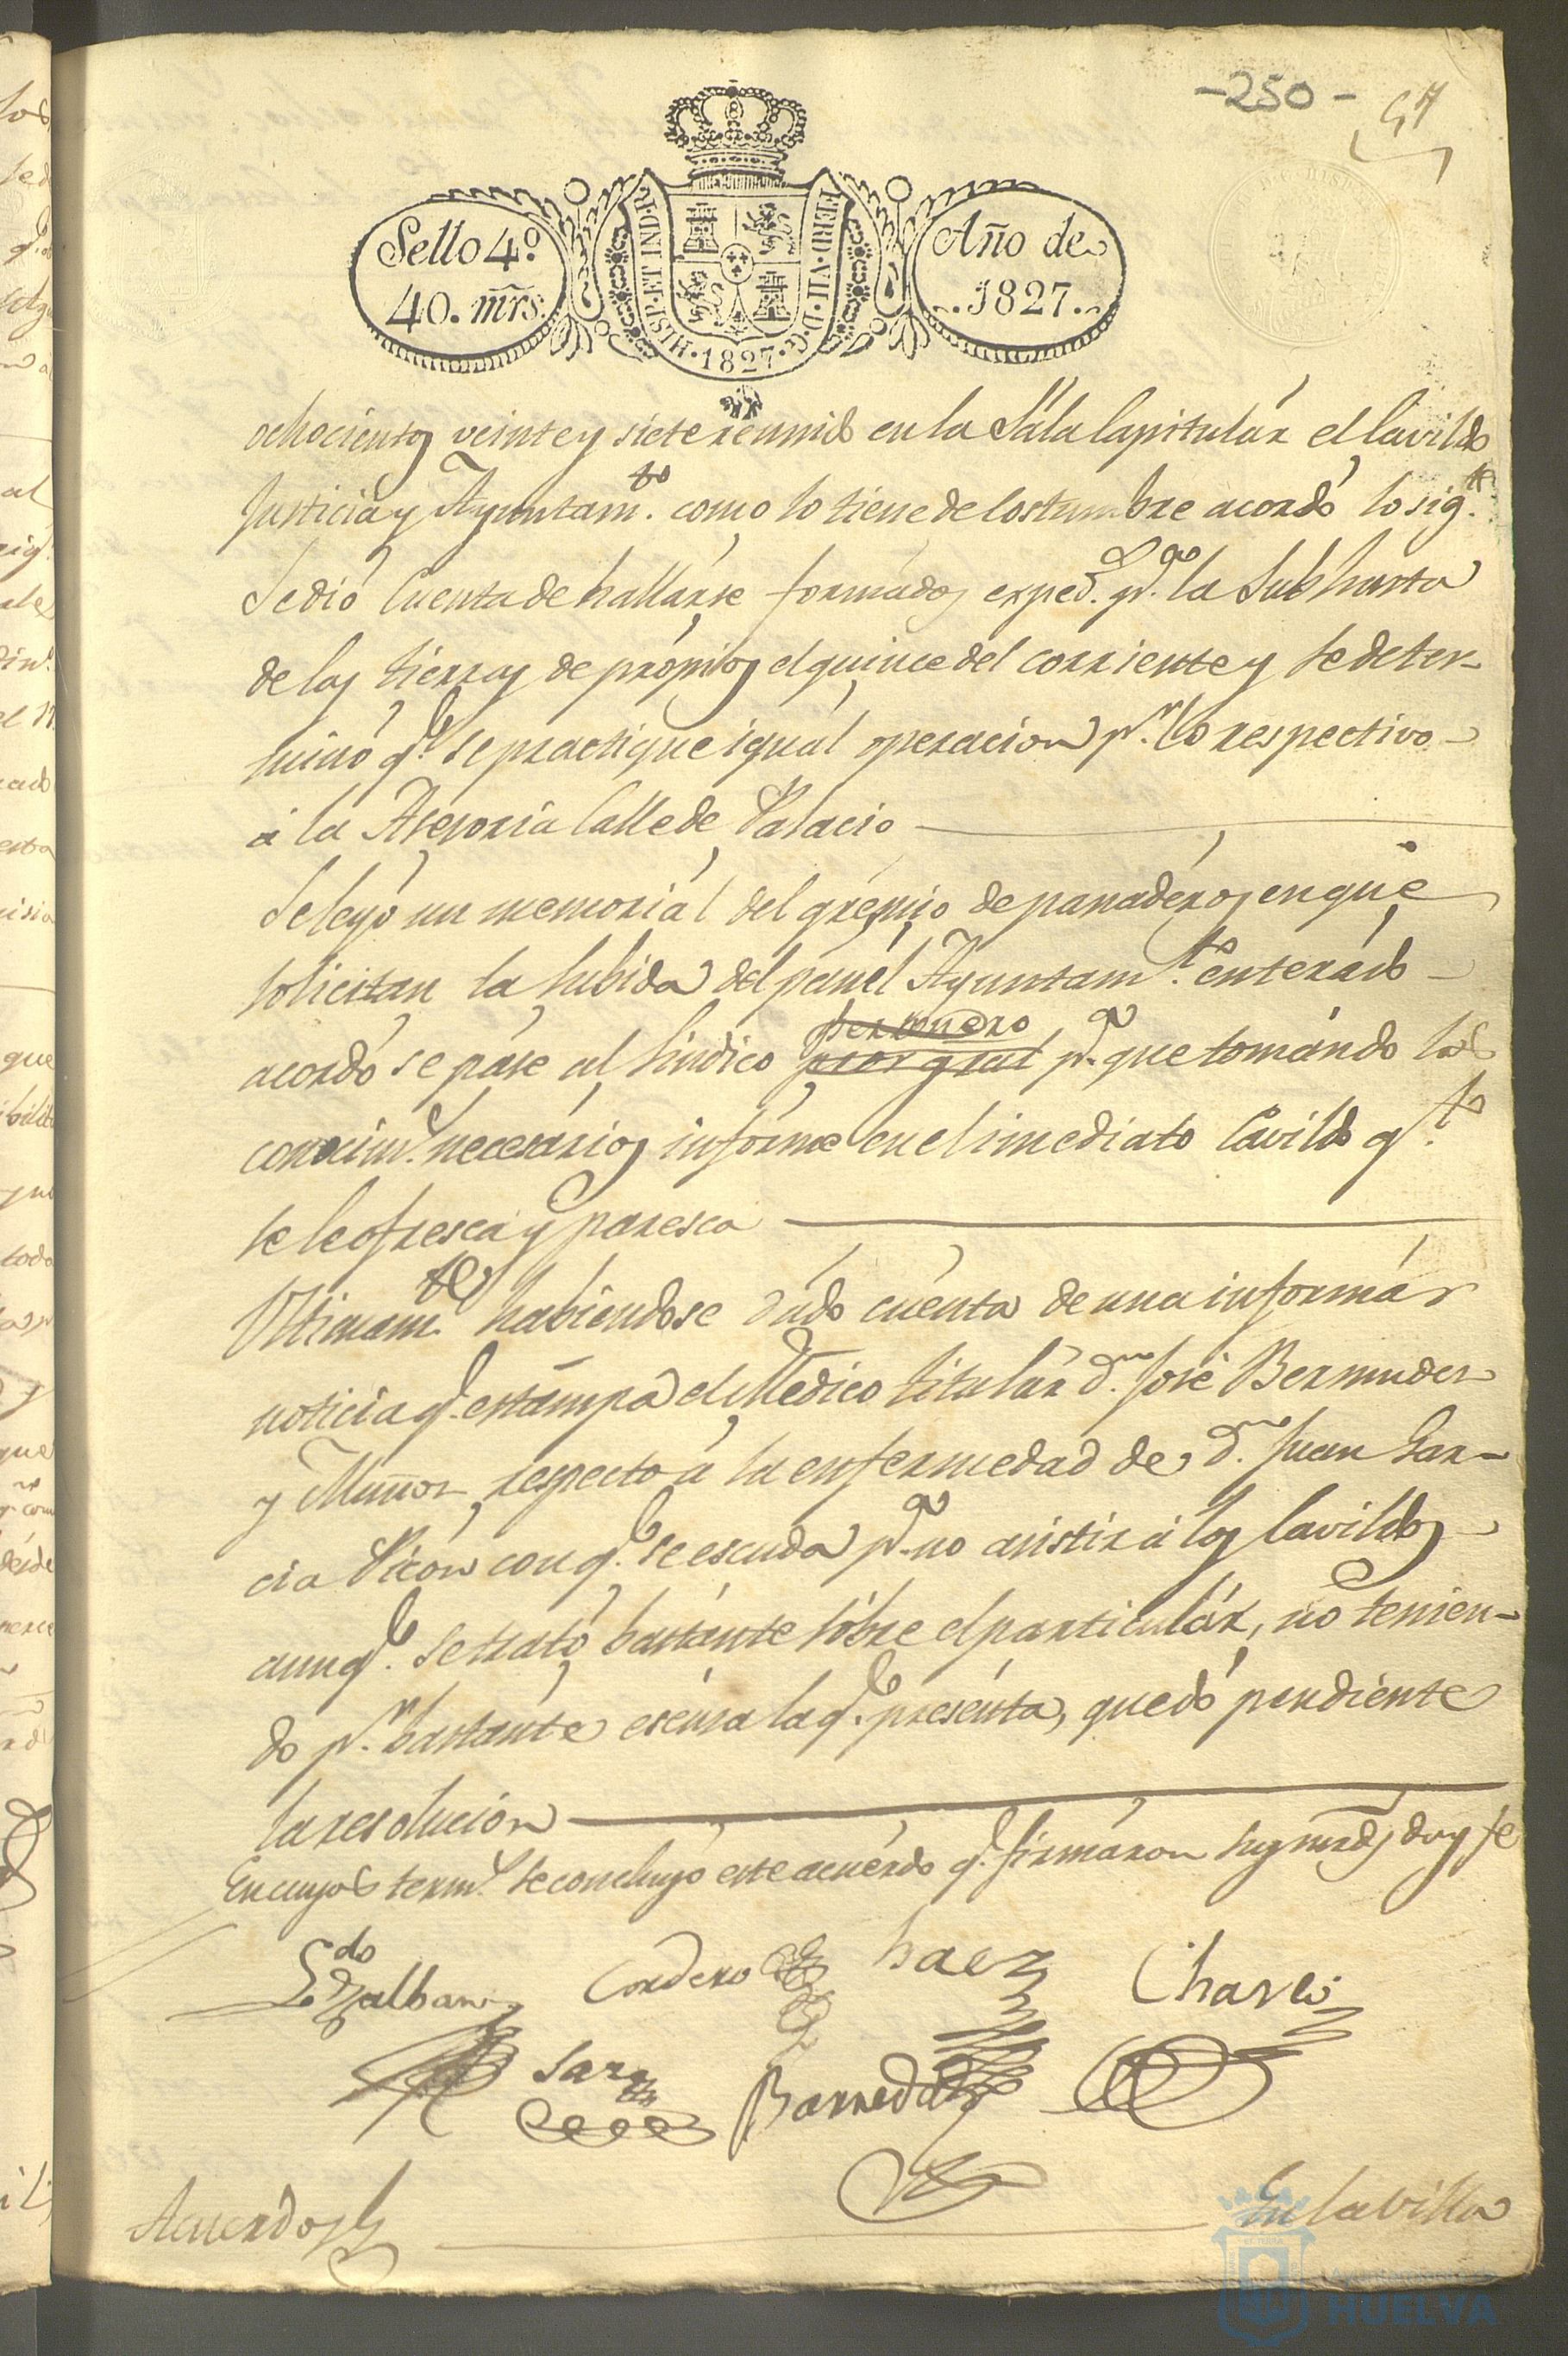 -250-
57
Sello 4º
40. mr̃s.
HISP. ET IND. R.
FERD. VII. D. G.
· 1827 ·
Año de
..1827..
ochocientos veinte y siete reunido en la Sala Capitulár el Cavildo
Justicia y Ayuntam.to como lo tiene de Costumbre acordó lo sig.te
Se dió Cuenta de hallárse formádos exped.s p.a la Subhasta
de las tierras de própios el quince del corriente y se deter-
minó q.e se practique iguál operacion p.r lo respectivo
á la Asesoría Calle de Palacio
Se leyó un memoriál del grémio de panadéros en que
solicitan la subida del pan él Ayuntam.to enterádo
acordó se páse al Sindico perzonero
pror gral p.a que tomándo los
conocim.tos necesários infórme en el imediato Cavildo q.to
se le ofresca y paresca
Ultimam.te habiendose dádo cuénta de una informár
noticia q.e estámpa el Medico titulár d.n José Bermudez
y Muñoz respecto á la enfermedad de d.n Juan Gar-
cia Picón con q.e se escuda p.a no asistir á los Cavildos
aunq.e se trató bastánte sóbre el particulár, no tenien-
do p.r bastánte escúsa la q.e presénta, quedó pendiénte
la resolución
En cuyos term.s se concluyó este acuérdo q.e firmáron sus mrds doy fe
Cordero
Saez
Charlo
Barreda
Acuerdo
En la villa
Ayuntamiento de
HUELVA